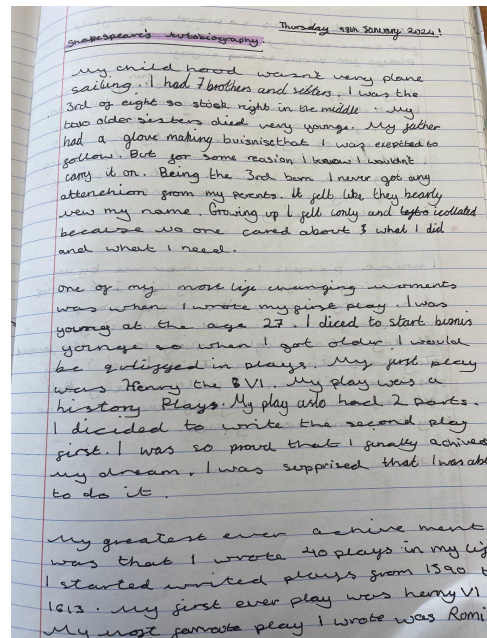 Thursday 18th January 2024!
Shakespeare's Autobiography.
My child hood wasn't very plane
sailing. I had 7 brothers and sisters. I was the
3rd of eight so stook right in the middle. My
two older siesters died very younge. My father
had a glove making buisnisethat I was exepited to
follow. But for some reason I knew I wouldn't
carry it on. Being the 3rd born I never got any
attenchion from my perents. It felt like they bearly
new my name. Growing up I felt lonly and icollated
because no one cared about what I did
and what I need.
One of my most life changing moments
was when I wrote my first play. I was
young at the age 27. I diced to start
younge so when I got older I would
be in plays. My first play
was Henry the VI. My play was a
history Plays. My play also had 2 parts.
I dicided to write the second play
first. I was so proud that I finally achives
my dream. I was supprised that I was abl
to do it.
My greatest ever achive ment
was that I wrote 40 plays in my lif
I started writed plays from 1590 t
1613. My first ever play was henry VI
My most famoute play I wrote was Romi